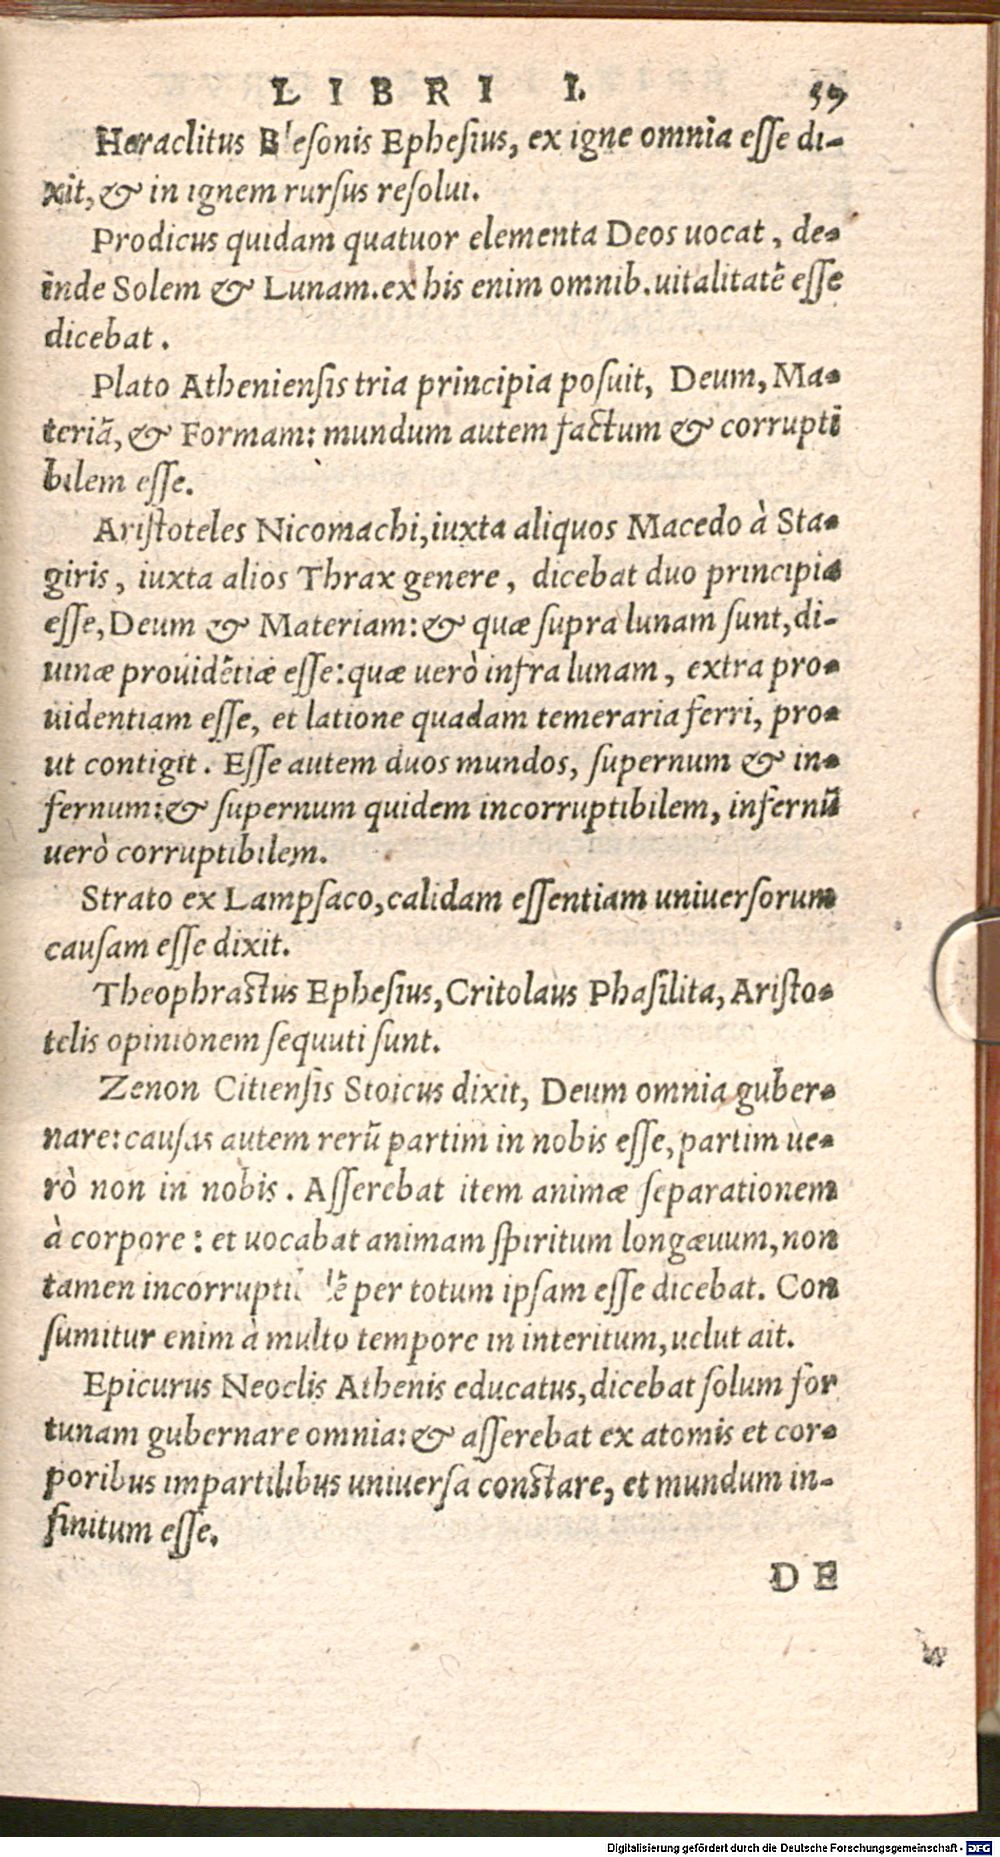 LIBRI I. 59
Heraclitus Blesonis Ephesius, ex igne omnia esse di-
xit, & in ignem rursus resolui.
Prodicus quidam quatuor elementa Deos uocat, de-
inde Solem & Lunam. ex his enim omnib. uitalitatē esse
dicebat.
Plato Atheniensis tria principia posuit, Deum, Ma-
teriā, & Formam: mundum autem factum & corrupti
bilem esse.
Aristoteles Nicomachi, iuxta aliquos Macedo à Sta-
giris, iuxta alios Thrax genere, dicebat duo principia
esse, Deum & Materiam: & quæ supra lunam sunt, di-
uinæ prouidētiæ esse: quæ uerò infra lunam, extra pro-
uidentiam esse, et latione quadam temeraria ferri, pro-
ut contigit. Esse autem duos mundos, supernum & in-
fernum: & supernum quidem incorruptibilem, infernū
uerò corruptibilem.
Strato ex Lampsaco, calidam essentiam uniuersorum
causam esse dixit.
Theophractus Ephesius, Critolaus Phasilita, Aristo-
telis opinionem sequuti sunt.
Zenon Citiensis Stoicus dixit, Deum omnia guber-
nare: causas autem rerū partim in nobis esse, partim ue-
rò non in nobis. Asserebat item animæ separationem
à corpore: et uocabat animam spiritum longæuum, non
tamen per totum ipsam esse dicebat. Con
sumitur enim à multo tempore in interitum, uelut ait.
Epicurus Neoclis Athenis educatus, dicebat solum for
tunam gubernare omnia: & asserebat ex atomis et cor-
poribus impartilibus uniuersa constare, et mundum in-
finitum esse.
DE
Digitalisierung gefördert durch die Deutsche Forschungsgemeinschaft - DFG